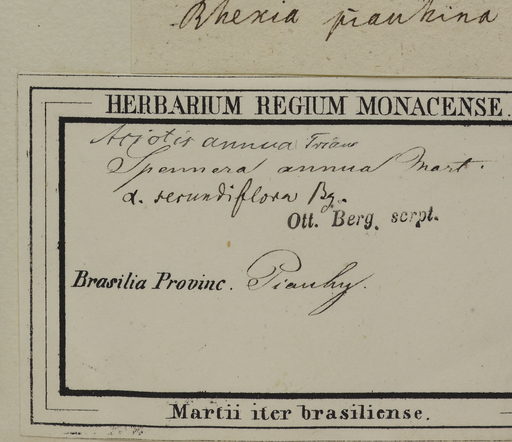 Rhexia piauhina
HERBARIUM REGIUM MONACENSE.
Aciotis annua Triana
Spennera annua Mart.
α. secundiflora Bg.
Ott. Berg. scrpt.
Brasilia Provinc. Piauhy.
Martii iter brasiliense.